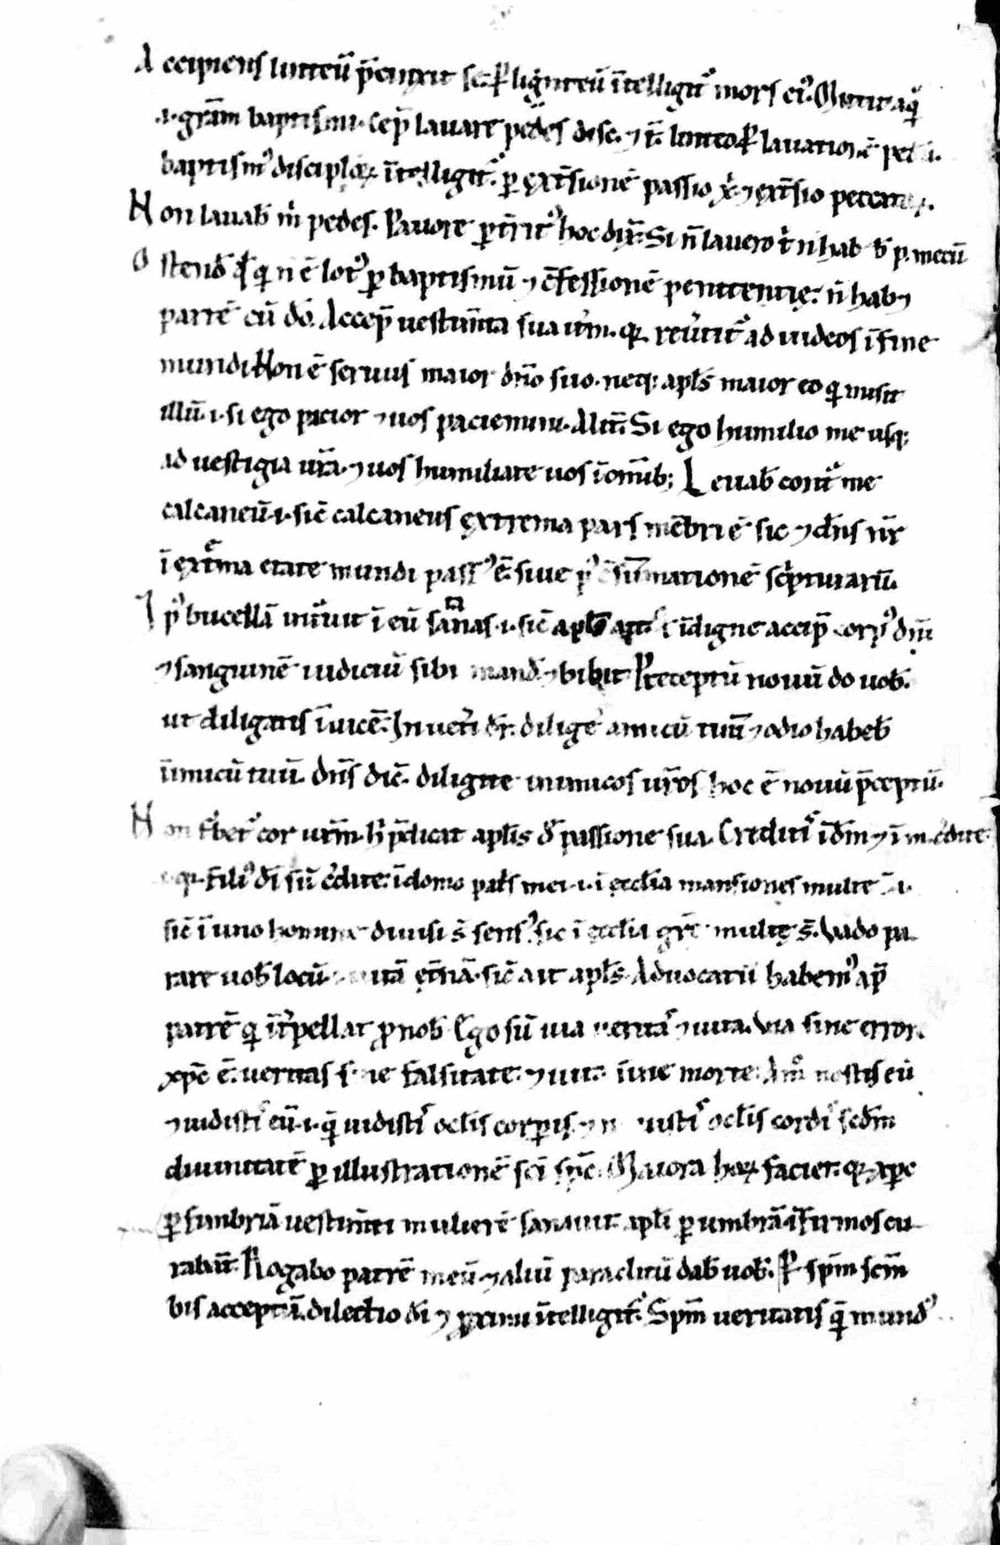 Accipiens linteū p̄cinxit se. ꝑ lignteū īteligit᷒ mors ei᷒. Mittit aqͣ̄
.i. gr̄am baptismi. Cep̄ lauare pedes disc. ⁊ t̄. linteo ꝑ lauationē
baptism᷒ disciploꝝ īteligit᷒. ꝑ ext̄sionē passio xp̄i ⁊ ext̄sio
Non lauab̄ m̄ pedes. Pauore ꝑt̄rit᷒ hoc dix̄. Si n̄ lauero t̄ n̄ hab̄ b̄ p. mecū
Ostend̄ qđ qi n̄ ē lot᷒ ꝑ baptismū ⁊ c̄fessionē penitentię. n̄ habꝫ
partē cū do. Accep̄ uestim̄ta sua it̄m. qꝛ reūtit᷒ ad iudeos ī fine
mundi. Non ē seruus maior dn̄o suo. neq; apl̄s maior eo qi misit
illū .i. si ego pacior ⁊ uos paciemini. Alit̄. Si ego humilio me usq;
ad uestigia ur̄a. ⁊ uos humiliare uos ī omīb; Leuab̄ cont᷒ me
calcaneū .i. sic̄ calcaneus extrema pars mēbri ē sic ⁊ dn̄s nr̄
ī ext᷒ma etate mundi pass᷒ ē. siue p᷒ c̄sūmationē sc᷒pturarū.
Ip᷒ bucellā int̄uit ī eū satanas .i. sic̄ apl̄s ait īdigne accip̄ corp᷒ dn̄i
⁊ sanguinē iudiciū sibi mand̄ ⁊ bibit. Preceptū nouū do uob̄.
ut diligatis īuicē. In uet̄i dr̄. dilige amicū tuū ⁊ odio habeb̄
inimicū tuū. dn̄s dic̄. diligite inimicos ur̄os hoc ē nouū p̄ceptū.
Non t᷒bet᷒ cor urm̄. h̄ p̄dicat apl̄is d̄ passione sua. Creditis ī dm̄ ⁊ ī m. c᷒dite
qꝛ fili᷒ di sū c᷒dite. ī domo pat̄s mei .i. ī ecclia mansiones multe s̄ .i.
sic̄ ī uno homine diuisi s̄ sens᷒ sic ī ecclia gr̄e multę s̄. Vado pa
rare uob̄ locū uitā et̄nā. sic̄ ait apl̄s. Aduocatū habem᷒ ap̄
patrē qi īt̄pellat ꝓ nob̄. Ego sū uia ueritas ⁊ uita. Via sine error.
xp̄c ē. ueritas sine falsitate. ⁊ uita sine morte. Am᷒ nostis eū
⁊ uidistis eū .i. qa uidistis oclis corporis ⁊ n uistis oclis cordis scdm̄
diuinitatē ꝑ illustrationē sci sp̄c. Maiora hoꝝ faciet. qꝛ xp̄c
ꝑ fimbriā uestim̄ti mulierē sanauit. apl̄i ꝑ umbrā īfirmos cu
rabāt. Rogabo patrē meū ⁊ aliū paraclitū dab̄ uob̄. ꝑ spm̄ scm̄
bis acceptū. dilectio di ⁊ ꝓximi īteligit᷒. Spm̄ ueritatis qē mund᷒